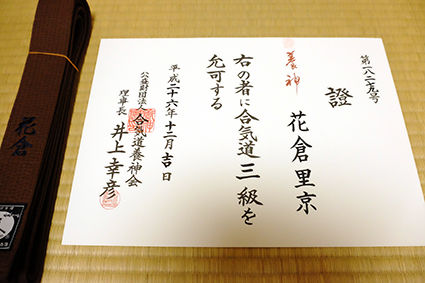 第一八二七九号
證
花倉里京
養神
右の者に合気道三級を
允可する
平成二十六年十二月吉日
公益財団法人合気道養神会
理事長 井上幸彦
花倉